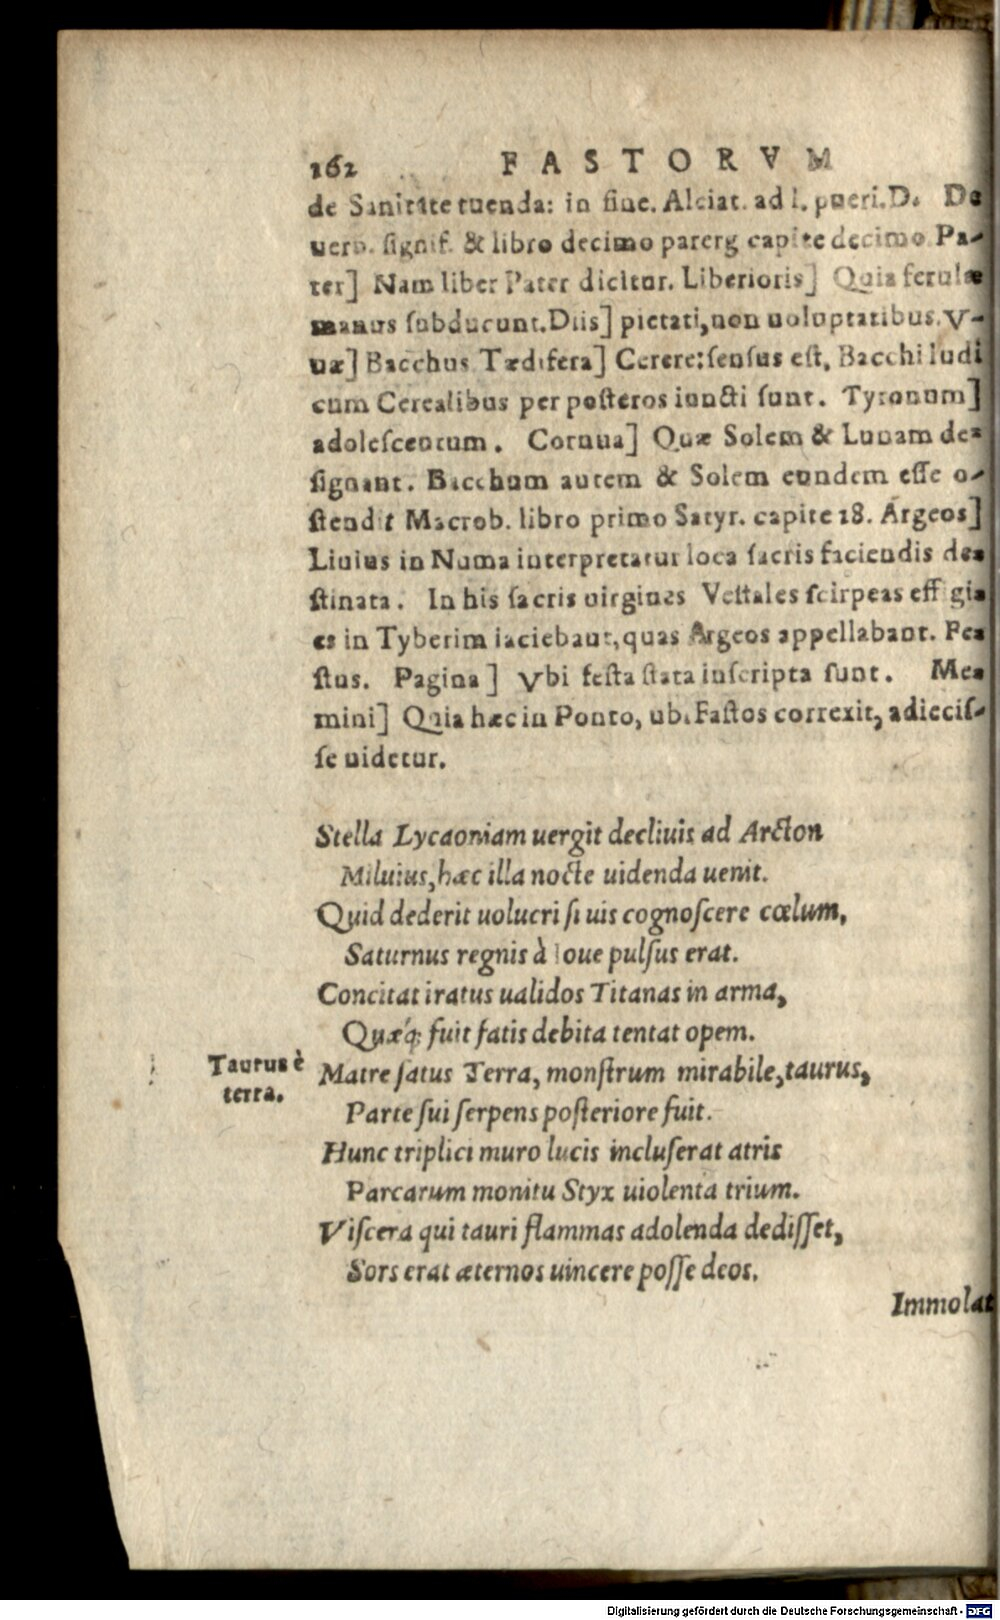 162 FASTORVM
de Sanitate tuenda: in fine. Alciat. ad l. pueri. D. De
uerb. signif. & libro decimo parerg capite decimo Pa-
ter] Nam liber Pater dicitur. Liberioris] Quia ferulæ
manus subducunt. Diis] pietati, non uoluptatibus. V-
uæ] Bacchus Tædifera] Cerere: sensus est, Bacchi ludi
cum Cerealibus per posteros iuncti sunt. Tyronum]
adolescentum. Cornua] Quæ Solem & Lunam de-
signant. Bacchum autem & Solem eundem esse o-
stendit Macrob. libro primo Satyr. capite 18. Argeos]
Liuius in Numa interpretatur loca sacris faciendis de-
stinata. In his sacris uirgines Vestales scirpeas effigi-
es in Tyberim iaciebant, quas Argeos appellabant. Fe-
stus. Pagina] Vbi festa stata inscripta sunt. Me-
mini] Quia hæc in Ponto, ubi Fastos correxit, adiecis-
se uidetur.
Stella Lycaoniam uergit decliuis ad Arcton
Miluius, hæc illa nocte uidenda uenit.
Quid dederit uolucri si uis cognoscere cœlum,
Saturnus regnis à Ioue pulsus erat.
Concitat iratus ualidos Titanas in arma,
Quæq́; fuit fatis debita tentat opem.
Taurus è
terra.
Matre satus Terra, monstrum mirabile, taurus,
Parte sui serpens posteriore fuit.
Hunc triplici muro lucis incluserat atris
Parcarum monitu Styx uiolenta trium.
Viscera qui tauri flammas adolenda dedisset,
Sors erat æternos uincere posse deos.
Immolat
Digitalisierung gefördert durch die Deutsche Forschungsgemeinschaft - DFG